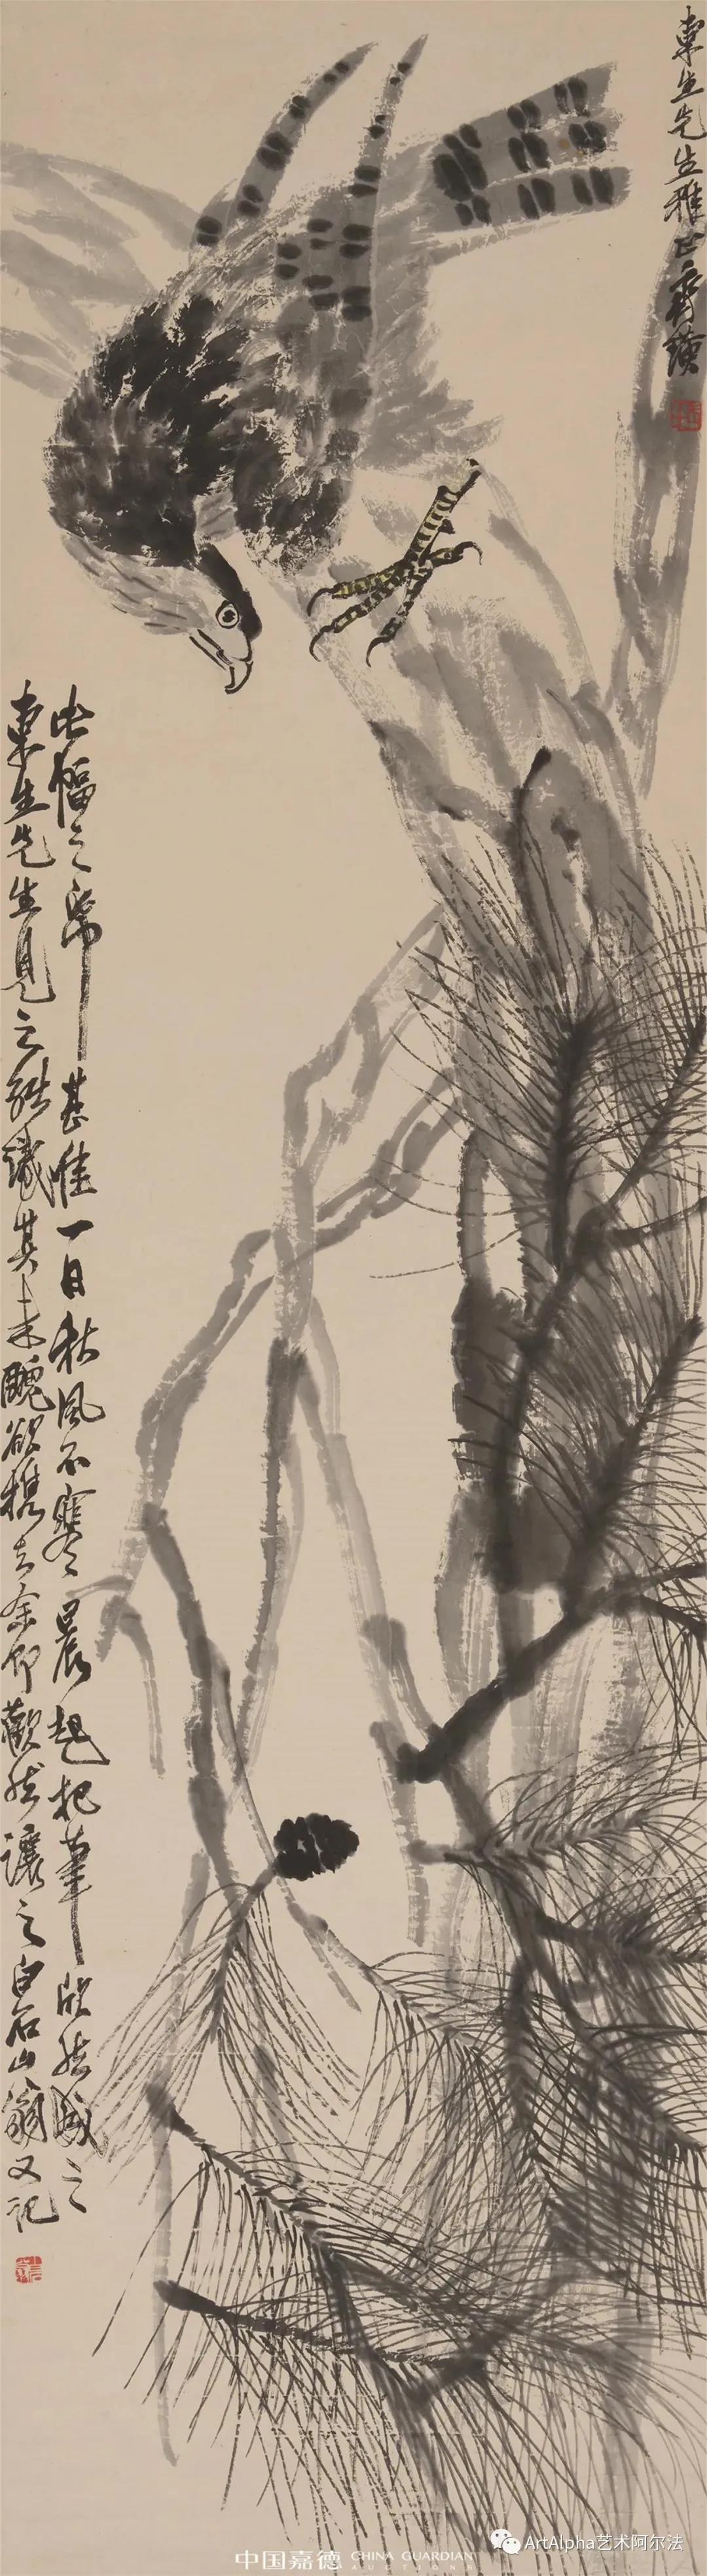 東生先生雅正齊璜
此幅之帋甚佳一日秋風不寒晨起把筆欣然成之
東生先生見之能識其未醜欲携去余即歡然讓之白石山翁又記
中国嘉德 CHINA GUARDIAN
AUCTIONS
ArtAlpha艺术阿尔法